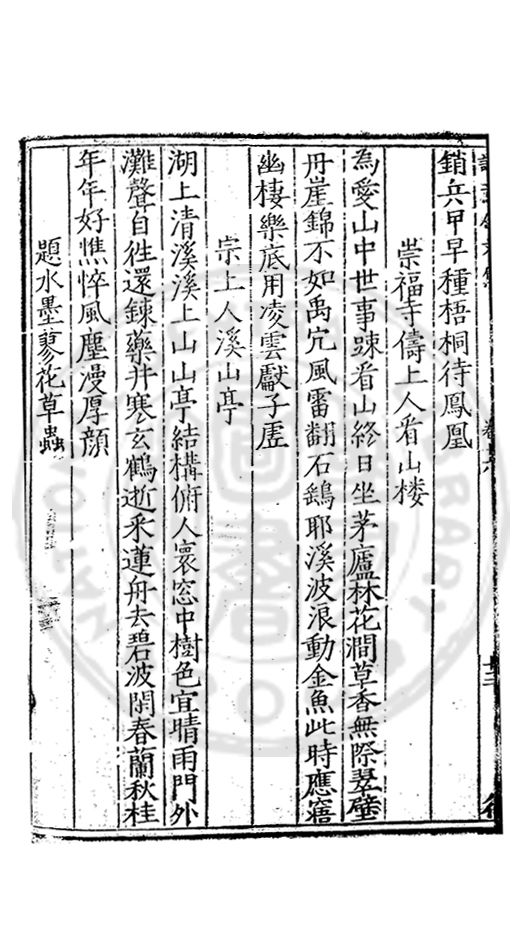 銷兵甲早種梧桐待鳳凰
崇福寺儔上人看山楼
為愛山中世事踈看山終日坐茅廬林花澗草香無際翠壁
丹崖錦不如禹穴風雷翻石鷂耶溪波浪動金魚此時應寤
幽棲樂底用凌雲獻子虛
宗上人溪山亭
湖上清溪溪上山山亭結構俯人寰窓中樹色宜晴雨門外
灘聲自徃還鍊藥井寒玄鶴逝采蓮舟去碧波閑春蘭秋桂
年年好憔悴風塵漫厚顔
題水墨蓼花草蟲